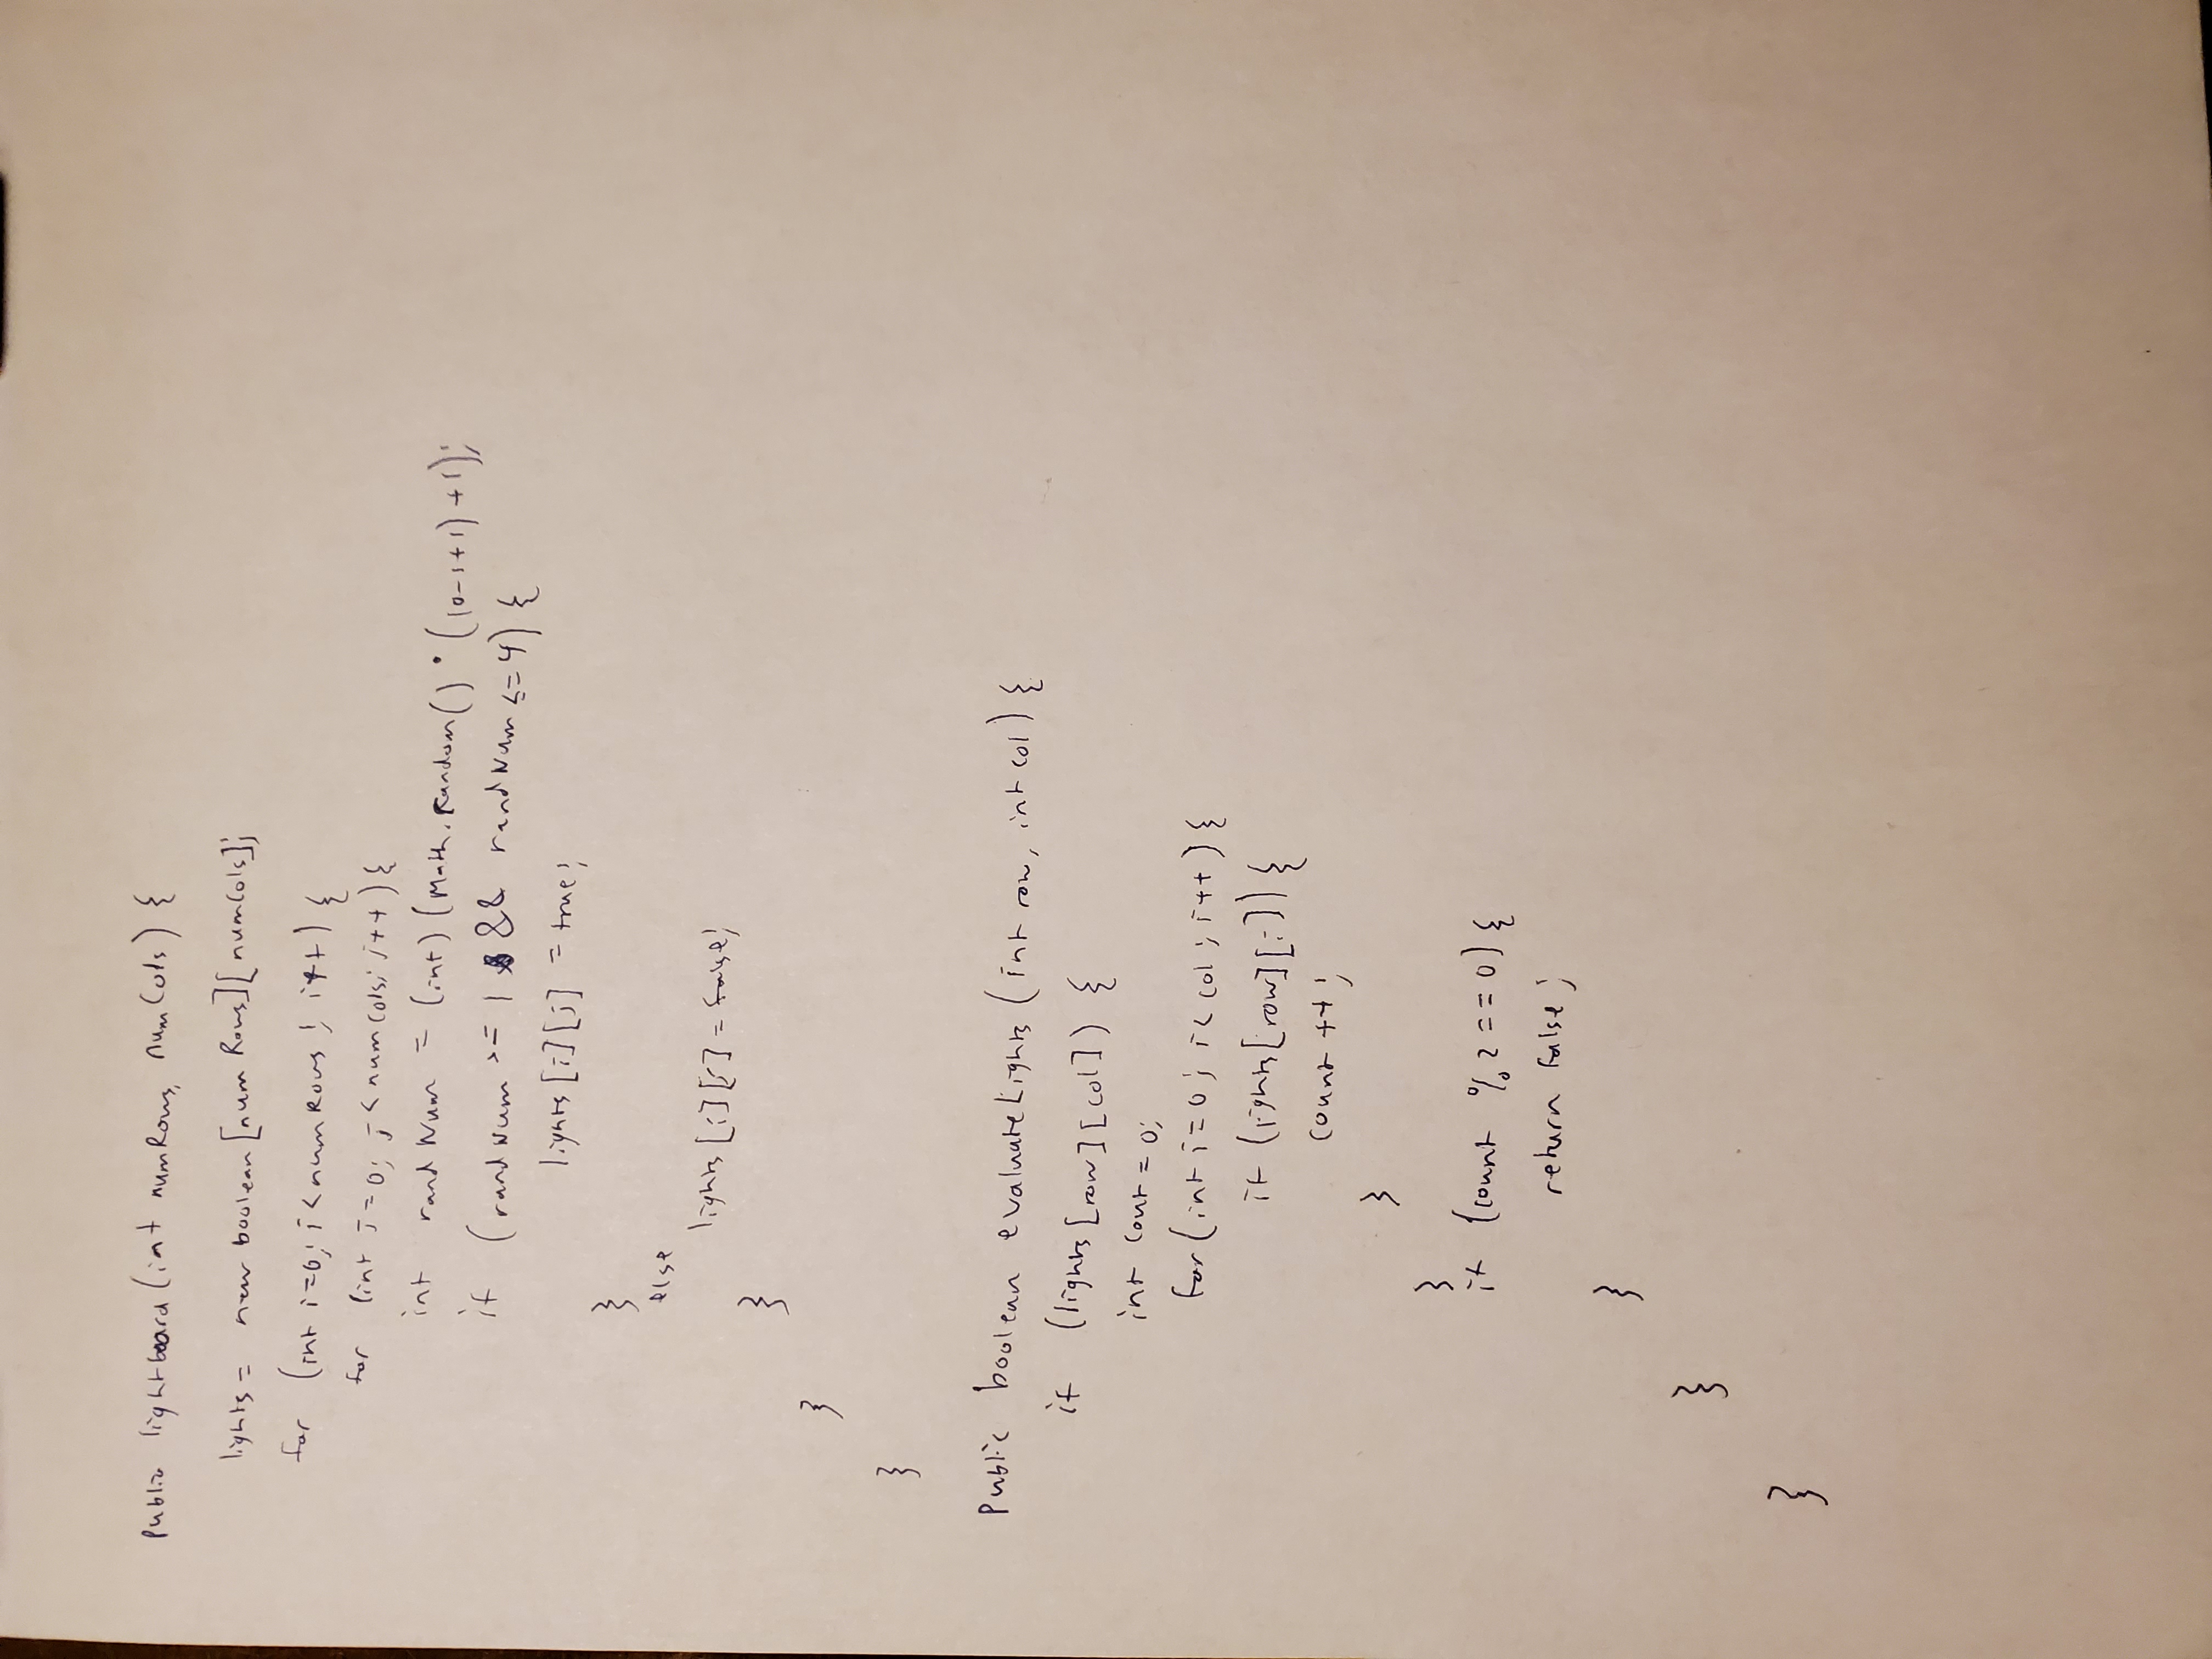 public lightboard (int numRows, numCols) {
lights = new boolean [numRows][numCols];
for (int i=0; i<numRows; i++) {
for (int j=0; j<numCols; j++) {
int randNum = (int) (Math.random() * (10-1+1) +1);
if (randNum >= 1 && randNum <= 4) {
lights [i][j] = true;
}
else
lights [i][j] = false;
}
}
}
public boolean evaluateLights (int row, int col) {
if (lights [row][col]) {
int cout = 0;
for (int i=0; i< col; i++) {
if (lights[row][i]) {
count ++;
}
}
if (count %2 == 0) {
return false;
}
}
}